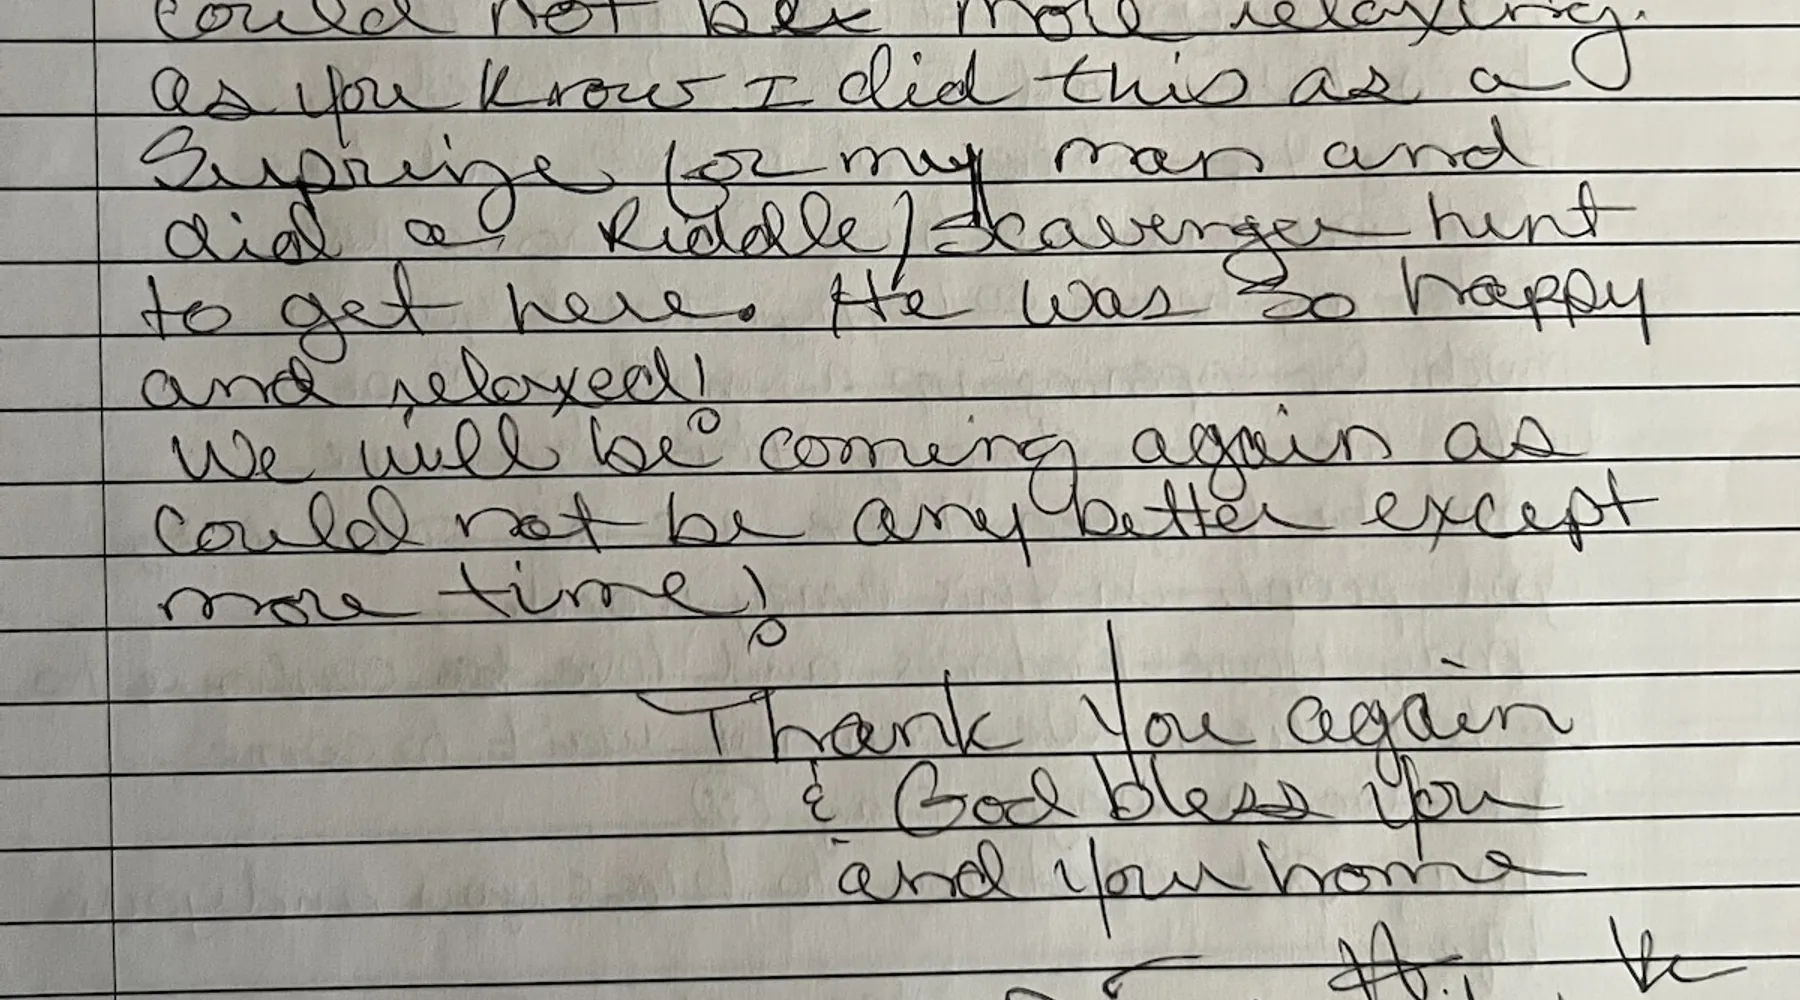 could not be more relaxing.
as you know I did this as a
Suprize for my man and
did a Riddle/Scavenger hunt
to get here. He was so happy
and relaxed!
We will be coming again as
could not be any better except
more time!
Thank you again
& God bless you
and your home